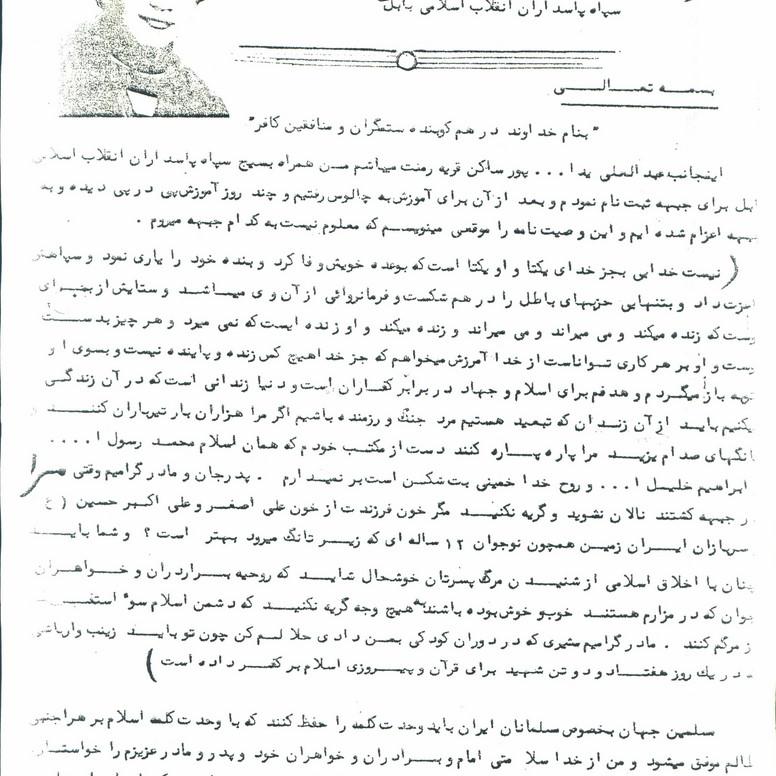 سپاه پاسداران انقلاب اسلامی بابل
بسمه تعالی
"بنام خداوند درهم کوبنده ستمگران و منافقین کافر"
اینجانب عبدالعلی یدا... پور ساکن قریه رمنت میباشم من همراه بسیج سپاه پاسداران انقلاب اسلامی
بابل برای جبهه ثبت نام نمودم و بعد از آن برای آموزش به چالوس رفتیم و چند روز آموزش پی در پی دیده و به
جبهه اعزام شده ایم و این وصیت نامه را موقعی مینویسم که معلوم نیست به کدام جبهه میروم .
( نیست خدایی بجز خدای یکتا و او یکتا است که بوعده خویش وفا کرد و بنده خود را یاری نمود و سپاهش
عزت داد و بتنهایی حزبهای باطل را درهم شکست و فرمانروائی از آن وی میباشد و ستایش از برای
اوست که زنده میکند و می میراند و می میراند و زنده میکند و او زنده ایست که نمی میرد و هر چیز بدست
اوست و او بر هر کاری تواناست از خدا آمرزش میخواهم که جز خدا هیچ کس زنده و پاینده نیست و بسوی او
توبه باز میگردم و هدفم برای اسلام و جهاد در برابر کفاران است و دنیا زندانی است که در آن زندگی
میکنیم باید از آن زندان که تبعید هستیم مرد جنگ و رزمنده باشیم اگر مرا هزاران بار تیرباران کنند و
تانکهای صدام یزید مرا پاره پاره کنند دست از مکتب خودم که همان اسلام محمد رسول ا....
ابراهیم خلیل ا... و روح خدا خمینی بت شکن است بر نمیدارم . پدرجان و مادر گرامیم وقتی مرا
در جبهه کشتند نالان نشوید و گریه نکنید مگر خون فرزندت از خون علی اصغر و علی اکبر حسین (ع
سربازان ایران زمین همچون نوجوان ۱۲ ساله ای که زیر تانک میرود بهتر است ؟ و شما باید
چنان با اخلاق اسلامی از شنیدن مرگ پسرتان خوشحال شاید که روحیه برادران و خواهران
جوان که در مزارم هستند خوب و خوش بوده باشند به هیچ وجه گریه نکنید که دشمن اسلام سوء
از مرگم کنند . مادر گرامیم شیری که در دوران کودکی بمن دادی حلالم کن چون تو باید زینب وار باشی
که در یک روز هفتاد و دو تن شهید برای قرآن و پیروزی اسلام بر کفر داده است )
مسلمین جهان بخصوص مسلمانان ایران باید وحدت کلمه را حفظ کنند که با وحدت کلمه اسلام بر هر
ظالم موفق میشود و من از خدا سلامتی امام و برادران و خواهران خود و پدر و مادر عزیزم را خواستارم